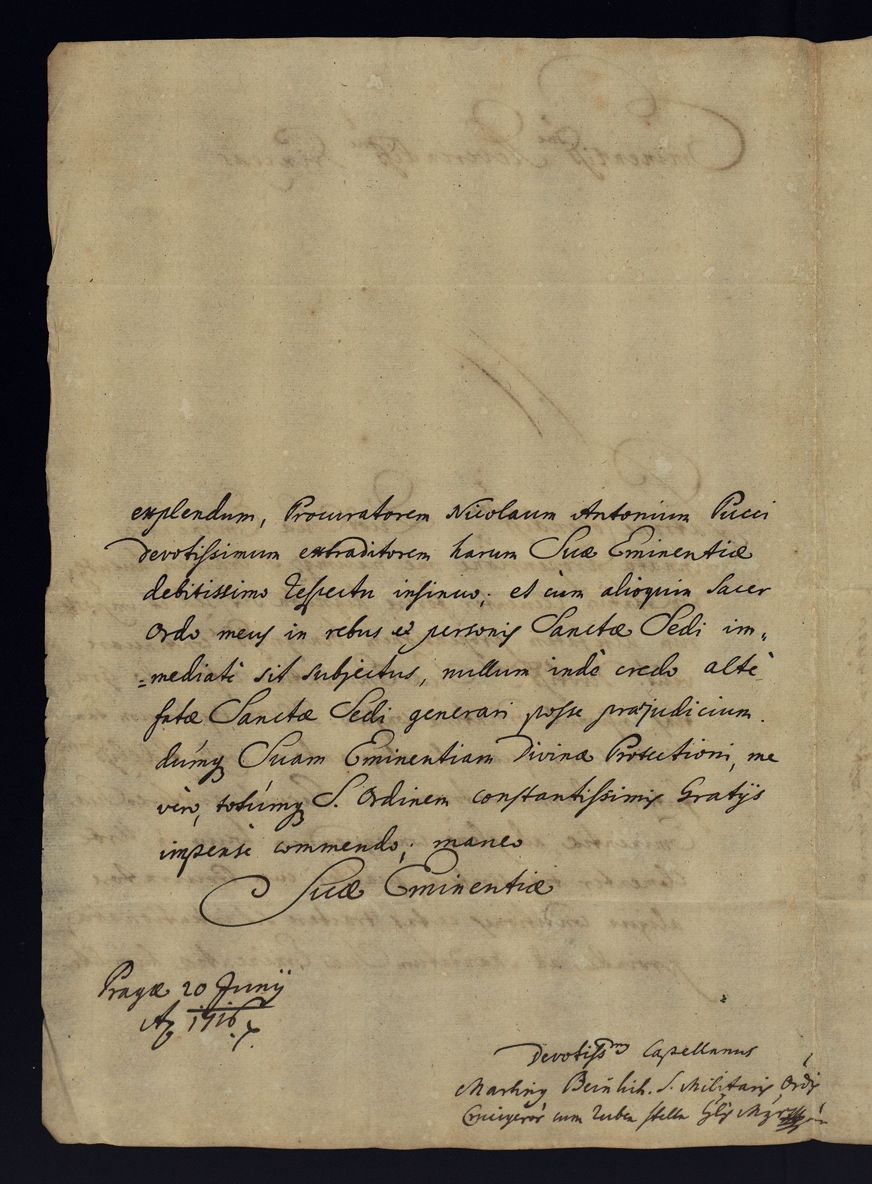 explendum, Procuratorem Nicolaum Antonium Pucci
devotissimum extraditorem harum Suæ Eminentiæ
debitissimo respectu insinuo; et cùm alioquin Sacer
Ordo meus in rebus et personis Sanctæ Sedi im=
=mediatè sit subjectus, nullum indè credo altè
fatæ Sanctæ Sedi generari posse præjudicium.
dúmq Suam Eminentiam Divinæ Protectioni, me
verò, totúmq S. Ordinem constantissimis Gratijs
impensè commendo; maneo
Suæ Eminentiæ
Pragæ 20 Junij
Ao 1716
Devotissmus Capellanus
Martinus Beinlich. S. Militaris Ordis
Crucigerór cum rubea stella Glis Mgr